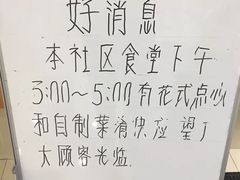 好消息
本社区食堂下午
3:00～5:00有花式点心
和自制菜肴供应 望广
大顾客光临.